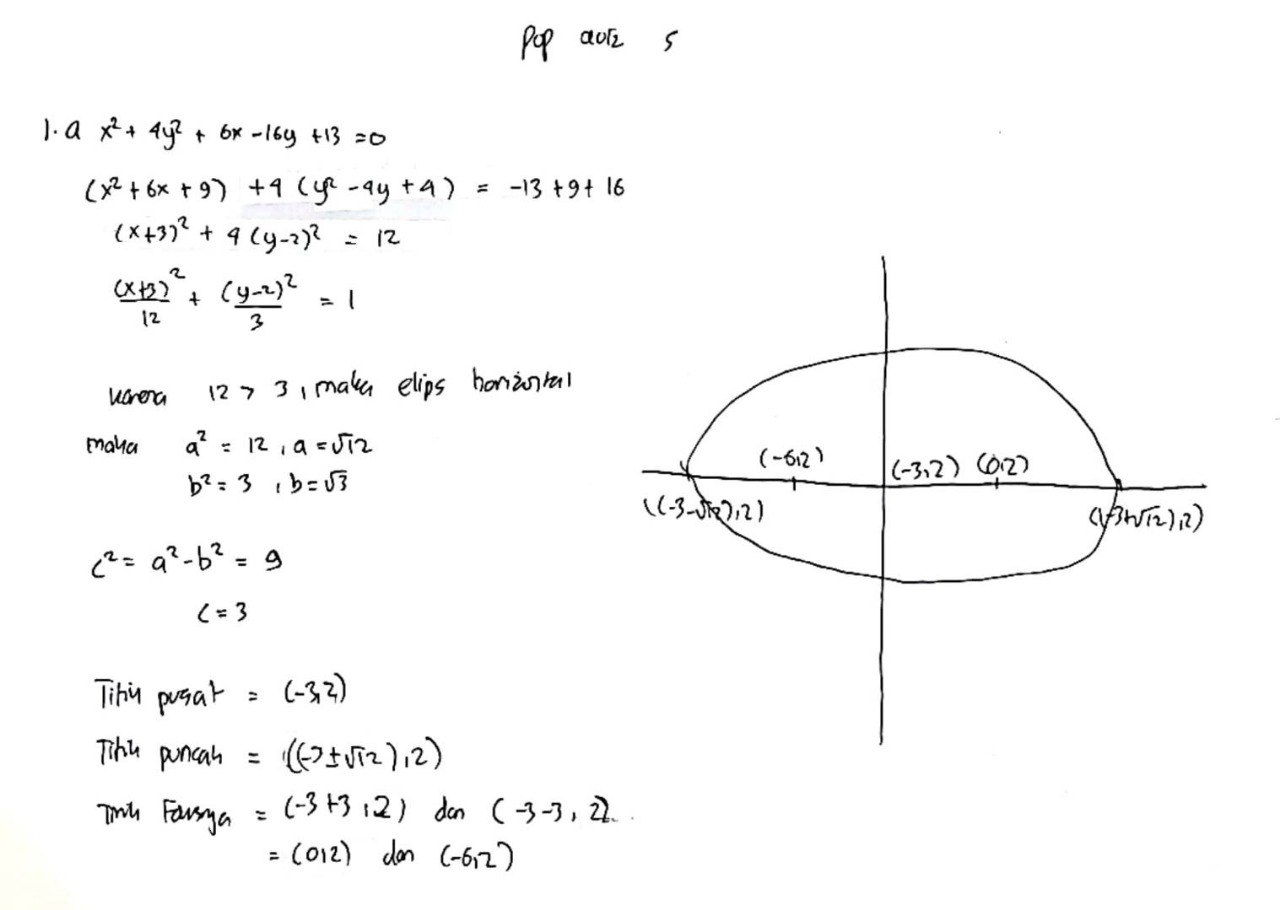 Pop quiz 5
1. a x² + 4y² + 6x - 16y + 13 = 0
(x² + 6x + 9) + 4 (y² - 4y + 4) = -13 + 9 + 16
(x+3)² + 4 (y-2)² = 12
(x+3)²/12 + (y-2)²/3 = 1
karena 12 > 3, maka elips horizontal
maka a² = 12, a = √12
b² = 3, b = √3
c² = a² - b² = 9
c = 3
Titik pusat = (-3,2)
Titik puncak = ((-3±√12),2)
Titik Fokusnya = (-3+3,2) dan (-3-3,2).
= (0,2) dan (-6,2)
(-6,2) (-3,2) (0,2)
((-3-√12),2) ((-3+√12),2)